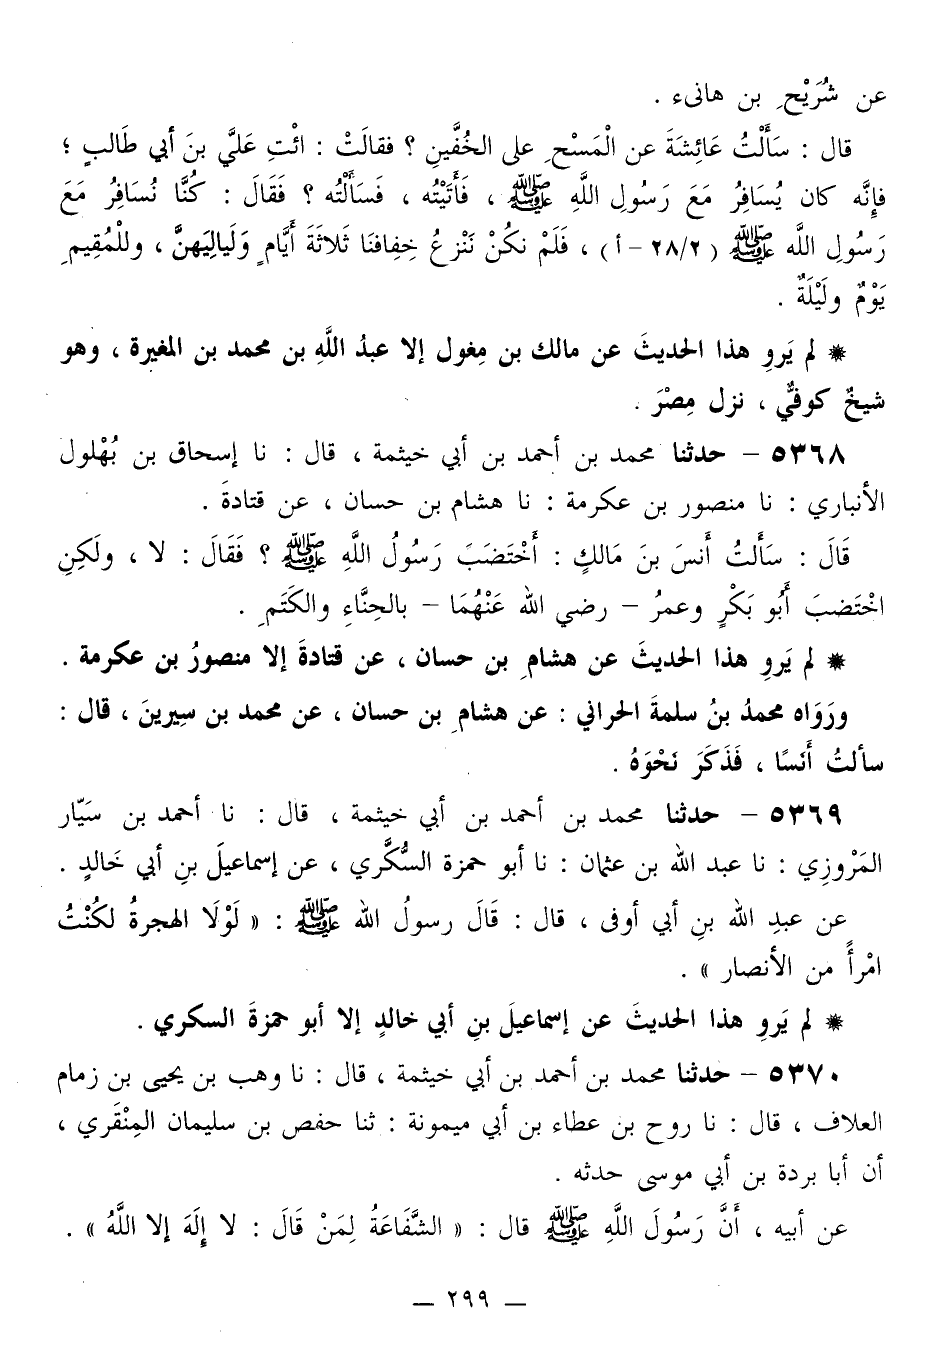 عن شُرَيْحِ بن هانىء .
قال : سَأَلْتُ عَائِشَةَ عن الْمَسْحِ على الخُفَّينِ ؟ فقالَتْ : ائْتِ عَليَّ بنَ أبي طَالبٍ ؛
فإِنَّه كان يُسَافِرُ مَعَ رَسُولِ اللَّهِ ﷺ ، فَأَتَيْتُه ، فَسَأَلْتُه ؟ فَقَالَ : كُنَّا نُسَافِرُ مَعَ
رَسُولِ اللَّه ﷺ ( ٢٨/٢ - أ ) ، فَلَمْ نكُنْ نَنْزعُ خِفافنَا ثَلاثَةَ أَيَّامٍ وَلَيالِيَهنَّ ، وللْمُقِيمِ
يَوْمٌ ولَيْلَةٌ .
* لم يَروِ هذا الحديثَ عن مالك بن مِغول إلا عبدُ اللَّهِ بن محمد بن المغيرة ، وهو
شيخٌ كوفيٌّ ، نزل مِصْرَ .
٥٣٦٨ - حدثنا محمد بن أحمد بن أبي خيثمة ، قال : نا إسحاق بن بُهْلول
الأنباري : نا منصور بن عكرمة : نا هشام بن حسان ، عن قتادةَ .
قَالَ : سَأَلتُ أَنسَ بنَ مَالكٍ : أَخْتَضَبَ رَسُولُ اللَّهِ ﷺ ؟ فَقَالَ : لا ، ولَكِنِ
اخْتَضبَ أَبُو بَكْرٍ وعمرُ – رضي الله عَنْهُمَا – بالحِنَّاءِ والكَتَمِ .
* لم يَروِ هذا الحديثَ عن هشامِ بن حسان ، عن قتادةَ إلا منصورُ بن عكرمة .
ورَوَاه محمدُ بنُ سلمةَ الحراني : عن هشامِ بن حسان ، عن محمد بن سِيرينَ ، قال :
سألتُ أَنَسًا ، فَذَكَرَ نَحْوَهُ .
٥٣٦٩ - حدثنا محمد بن أحمد بن أبي خيثمة ، قال : نا أحمد بن سَيّار
المَرْوزِي : نا عبد الله بن عثمان : نا أبو حمزة السُّكَّري ، عن إسماعيلَ بنِ أبي خَالدٍ .
عن عبدِ الله بنِ أبي أوفى ، قال : قَالَ رسولُ الله ﷺ : « لَوْلَا الهجرةُ لكُنْتُ
امْرأً من الأنصار » .
* لم يَروِ هذا الحديثَ عن إسماعيلَ بنِ أبي خالدٍ إلا أبو حمزةَ السكري .
٥٣٧٠ - حدثنا محمد بن أحمد بن أبي خيثمة ، قال : نا وهب بن يحيى بن زمام
العلاف ، قال : نا روح بن عطاء بن أبي ميمونة : ثنا حفص بن سليمان المِنْقَري ،
أن أبا بردة بن أبي موسى حدثه .
عن أبيه ، أَنَّ رَسُولَ اللَّهِ ﷺ قال : « الشَّفَاعَةُ لِمَنْ قَالَ : لا إِلَهَ إِلا اللَّهُ » .
– ٢٩٩ –